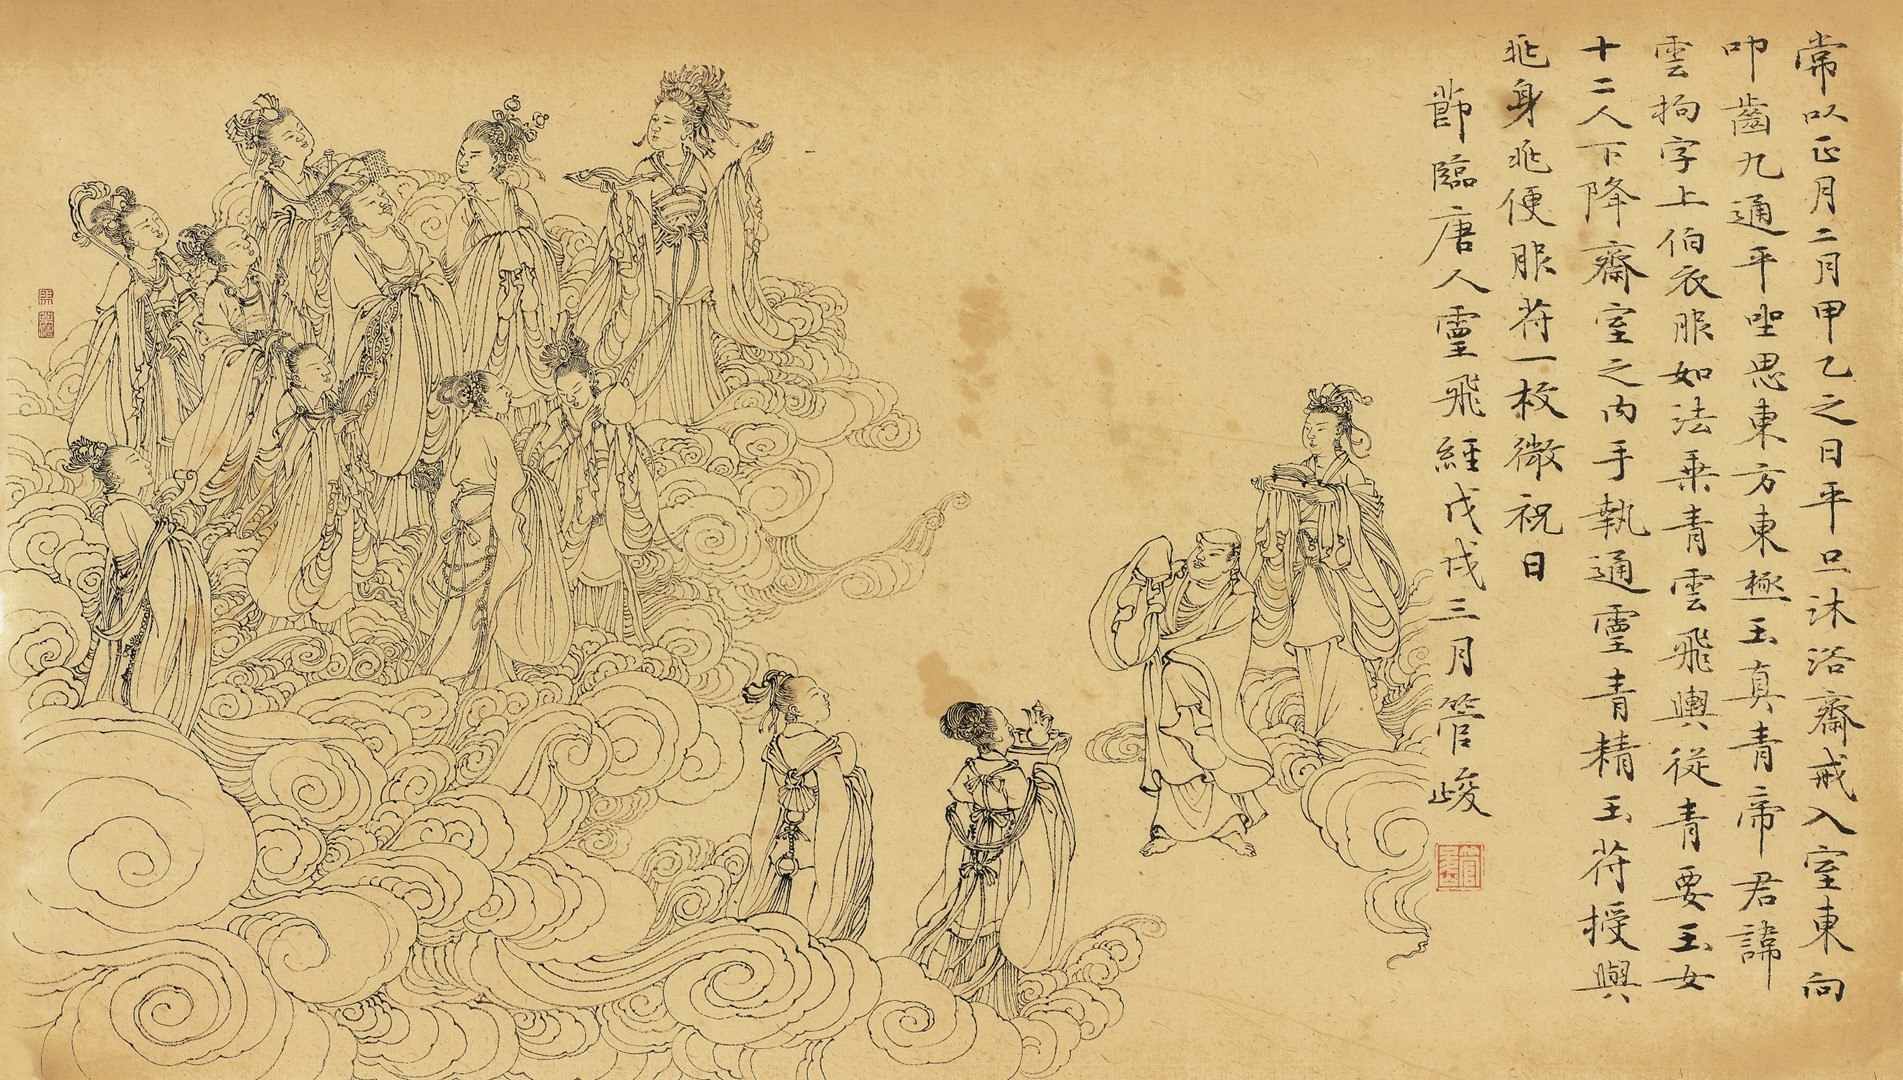 常以正月二月甲乙之日平旦沐浴齋戒入室東向
叩齒九通平坐思東方東極玉真青帝君諱
雲拘字上伯衣服如法乘青雲飛輿從青要玉女
十二人下降齋室之內手執通靈青精玉符授與
兆身兆便服符一枚微祝曰
節臨唐人靈飛經戊戌三月管峻